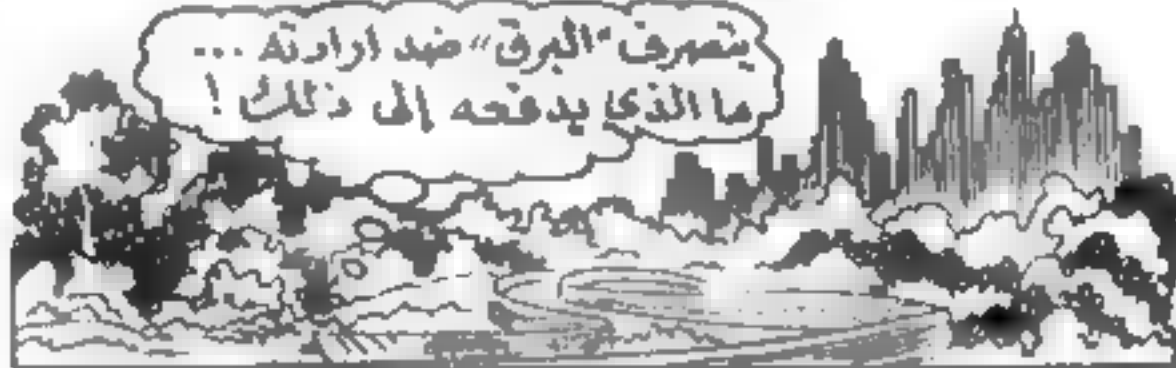 يتصرف "البرق" ضد ارادته ...
ما الذي يدفعه إلى ذلك !